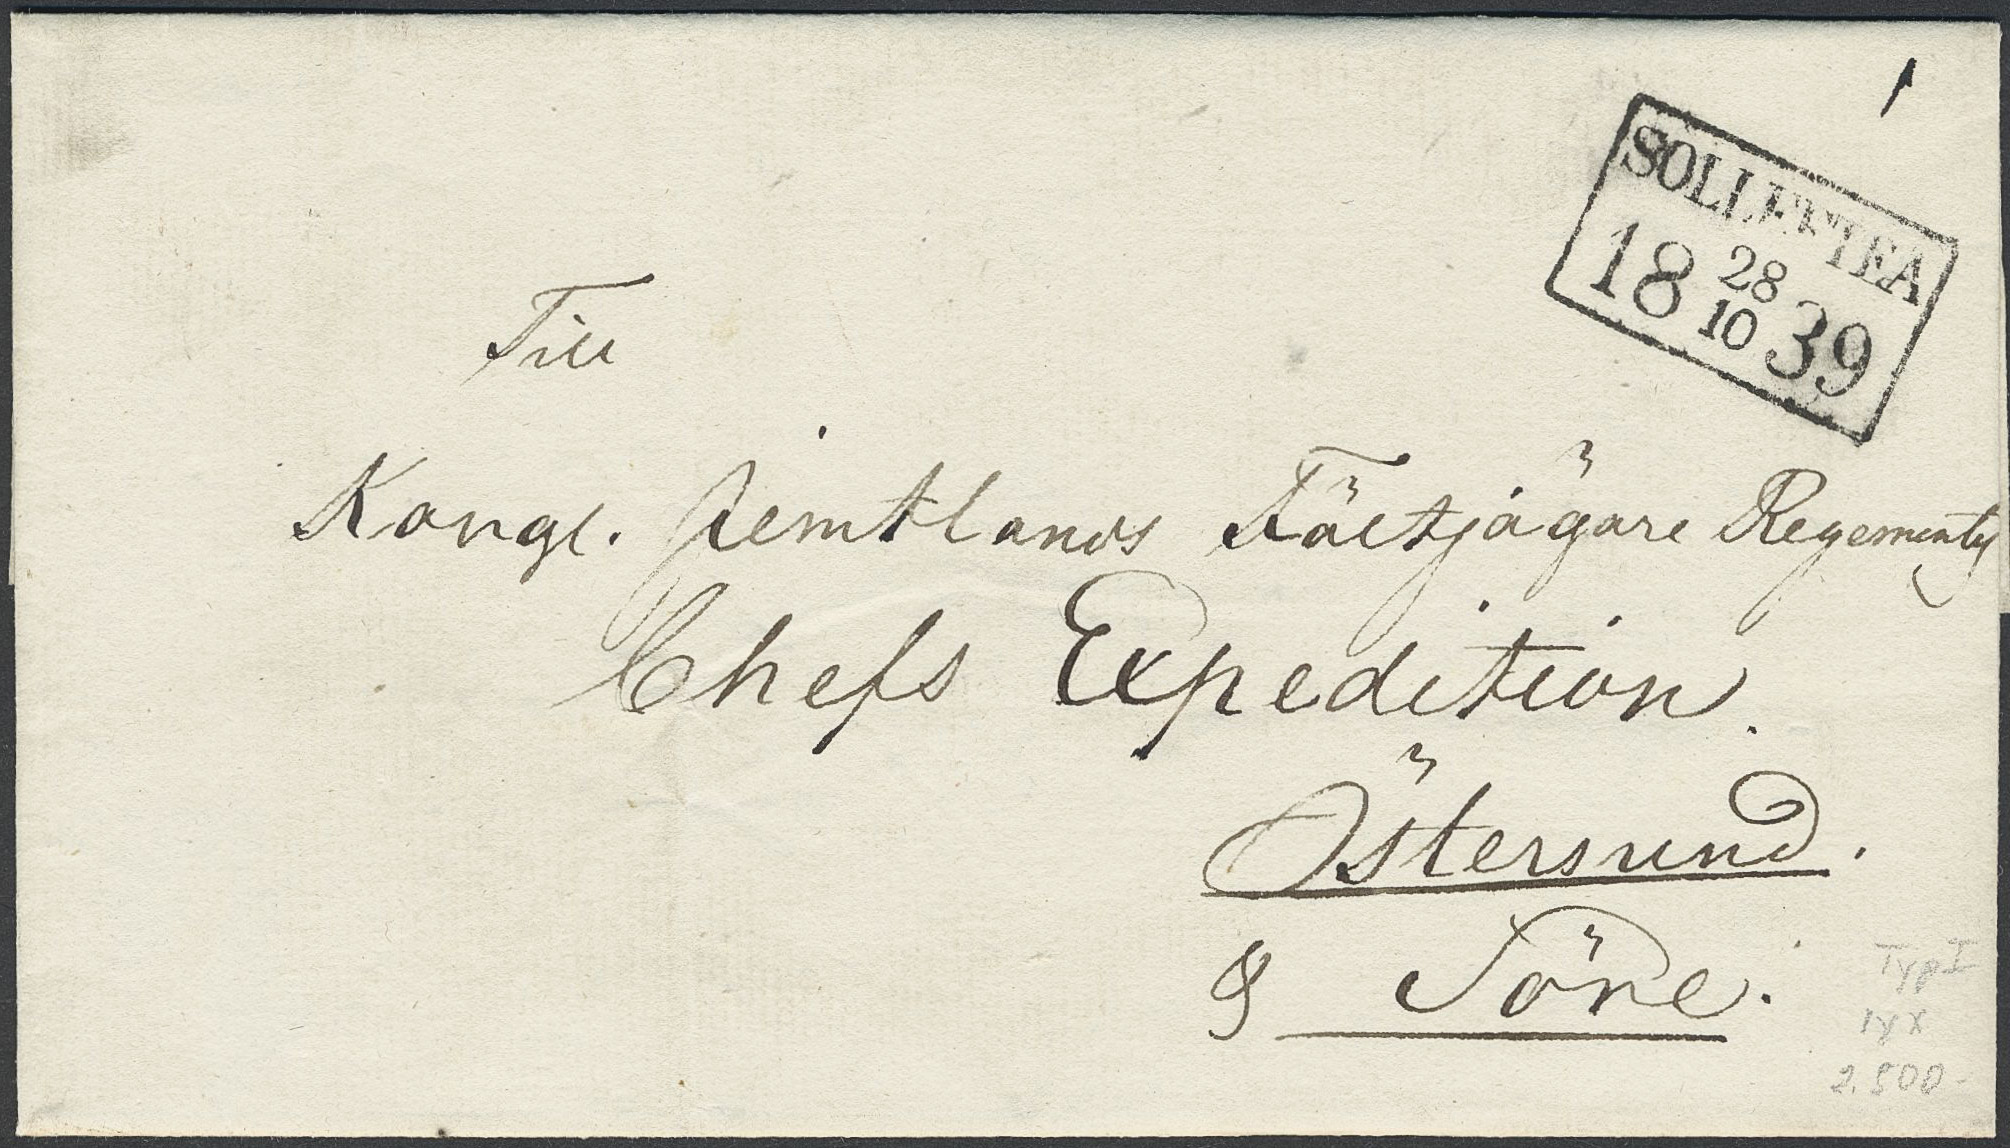 SOLLEFTEA
18 28/10 39
Till
Kongl. Jemtlands Fältjägare Regements
Chefs Expedition.
Östersund.
& Töre.
Typ I
lyx
2.500-